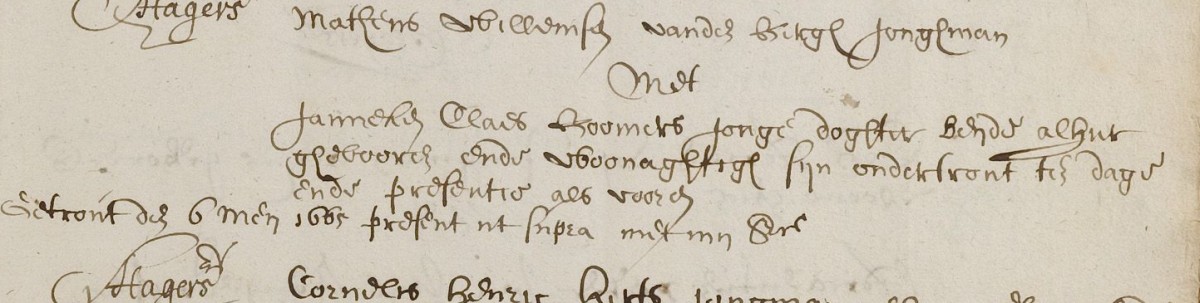 Hagers Matheus Willemsz vanden Bergh Jonghman
Met
Janneken Claes Boomers Jonge doghter beyde alhier
gheboore ende Woonaghtegh sijn ondertrout ten dage
ende presentie als vooren
Getrout den 6 Meij 1665 present ut supra
Hagers Cornelis Henric